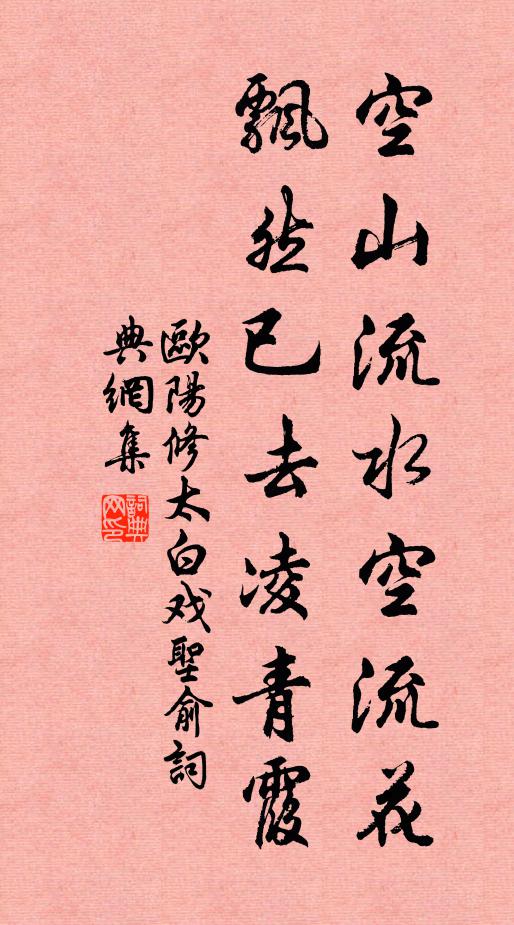 空山流水空流花
飄然已去凌青霞
歐陽修太白戏聖俞詞
典網集
詞典网印